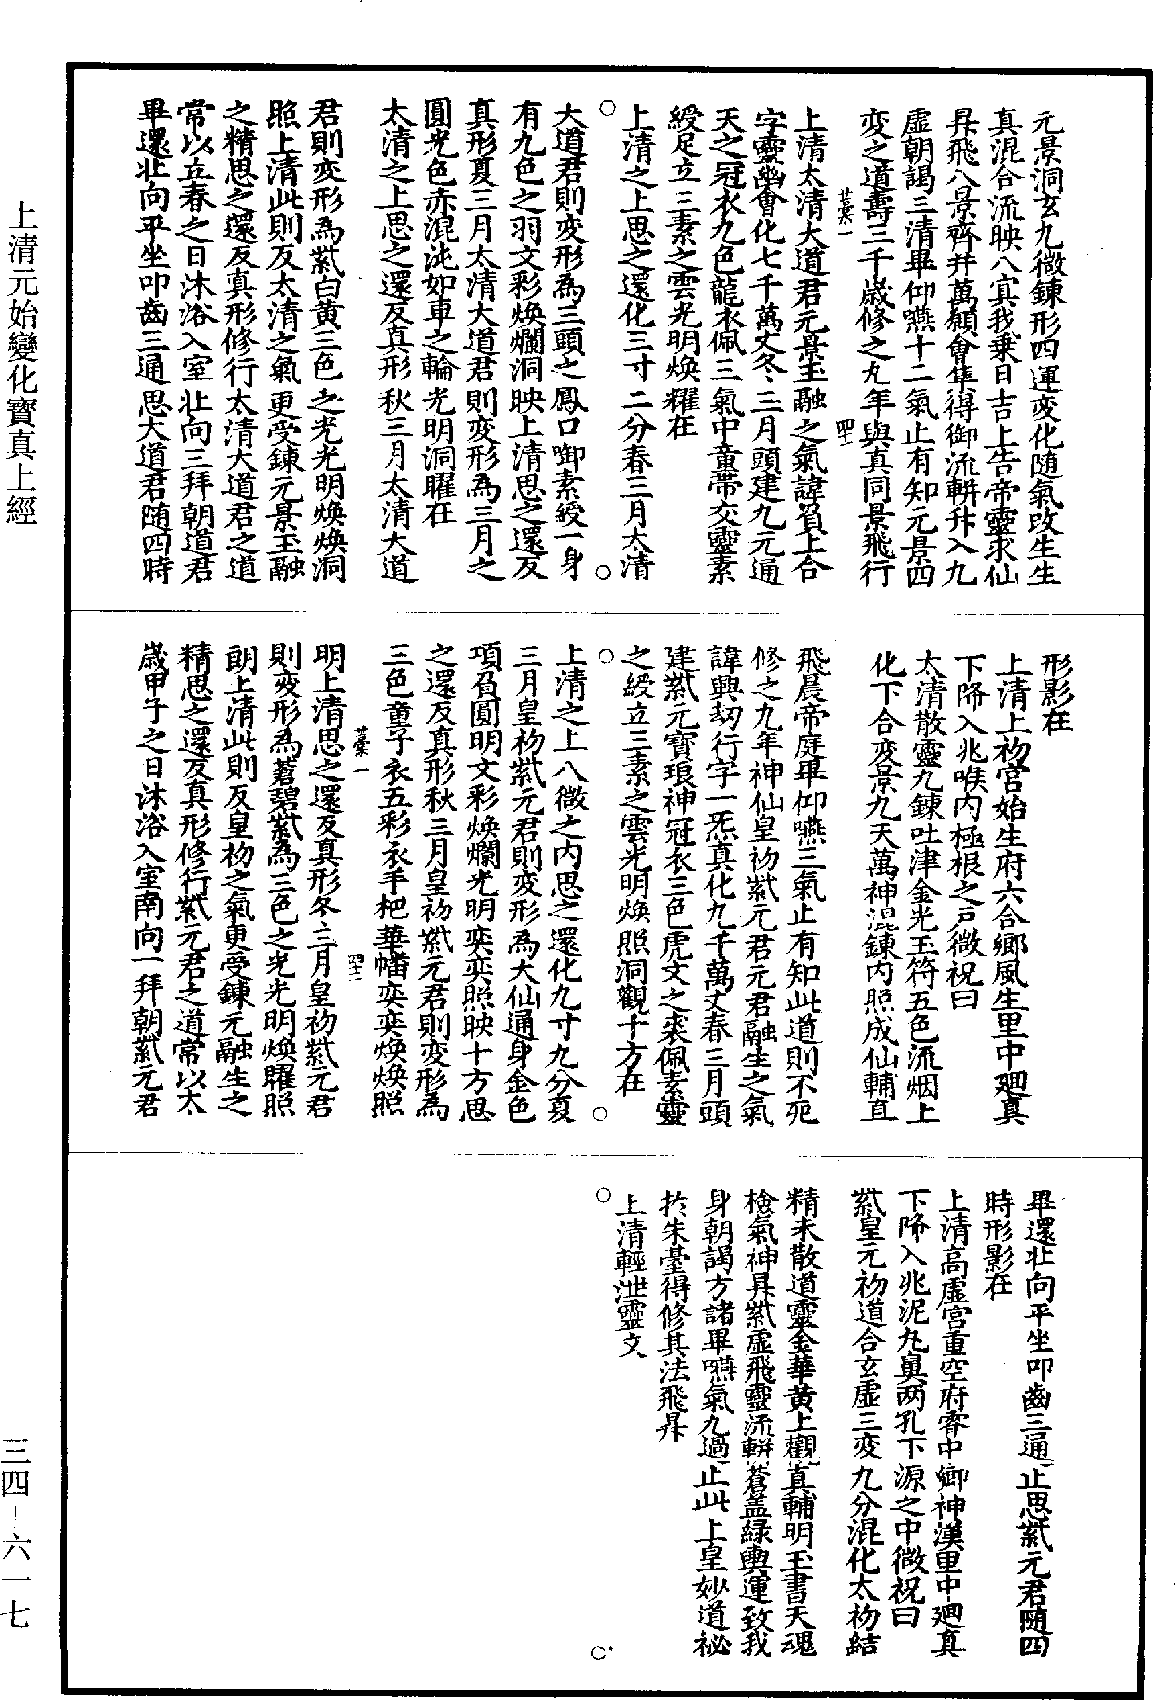 上清元始變化寶真上經
三四－六一七
元景洞玄九微鍊形四運变化随氣改生生
真混合流映八㝠我乗日吉上告帝靈求仙
昇飛八景齊并萬願會隼得御流軿升入九
虚朝謁三清畢仰嚥十二氣止有知元景四
变之道壽三千歳修之九年與真同景飛行
甘窠一
四十
上清太清大道君元景玉融之氣諱負上合
字靈幽會化七千萬丈冬三月頭建九元通
天之冠衣九色龍衣佩三氣中童帶交靈素
綬足立三素之雲光明煥耀在
上清之上思之還化三寸二分春三月太清
大道君則变形為三頭之鳳口啣素綬一身
有九色之羽文彩煥爛洞映上清思之還反
真形夏三月太清大道君則变形為三月之
圓光色赤混沌如車之輪光明洞曜在
太清之上思之還反真形秋三月太清大道
君則变形為紫白黄三色之光光明煥煥洞
照上清此則反太清之氣更受鍊元景玉融
之精思之還反真形修行太清大道君之道
常以立春之日沐浴入室北向三拜朝道君
畢還北向平坐叩齒三通思大道君随四時
形影在
上清上初宮始生府六合郷風生里中廻真
下降入兆喉内極根之戸微祝曰
太清散靈九鍊吐津金光玉符五色流烟上
化下合变景九天萬神混鍊内照成仙輔直
飛晨帝庭畢仰嚥三氣止有知此道則不死
修之九年神仙皇初紫元君元君融生之氣
諱興刼行字一炁真化九千萬丈春三月頭
建紫元寶琅神冠衣三色虎文之裘佩素靈
之綬立三素之雲光明煥照洞觀十方在
上清之上八微之内思之還化九寸九分夏
三月皇初紫元君則变形為大仙通身金色
項負圓明文彩煥爛光明奕奕照映十方思
之還反真形秋三月皇初紫元君則变形為
三色童子衣五彩衣手杷華幡奕奕煥煥照
甘窠一
四十二
明上清思之還反真形冬三月皇初紫元君
則变形為蒼碧紫為三色之光光明煥曜照
朗上清此則反皇初之氣更受鍊元融生之
精思之還反真形修行紫元君之道常以太
歳甲子之日沐浴入室南向一拜朝紫元君
畢還北向平坐叩齒三通止思紫元君随四
時形影在
上清高虚宮重空府霄中郷神漢里中廻真
下降入兆泥丸鼻两孔下源之中微祝曰
紫皇元初道合玄虚三变九分混化太初結
精未散道靈金華黄上觀真輔明玉書天魂
檢氣神昇紫虚飛靈流軿蒼盖緑輿運致我
身朝謁方諸畢嚥氣九過止此上皇妙道祕
於朱臺得修其法飛昇
上清輕泄靈文